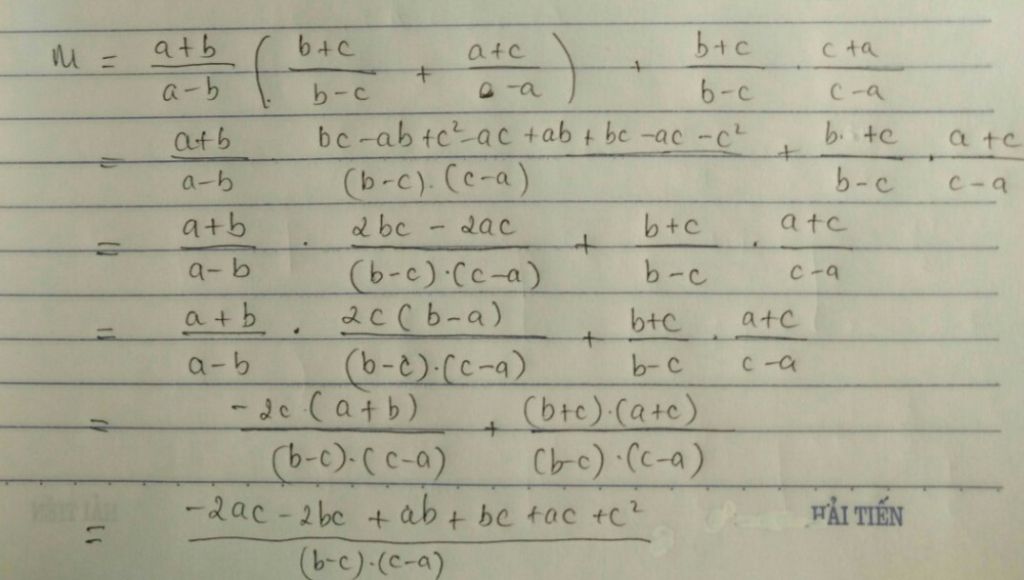 M = \frac{a+b}{a-b} ( \frac{b+c}{b-c} + \frac{a+c}{c-a} ) + \frac{b+c}{b-c} . \frac{c+a}{c-a}
= \frac{a+b}{a-b} \frac{bc-ab+c^2-ac+ab+bc-ac-c^2}{(b-c).(c-a)} + \frac{b+c}{b-c} . \frac{a+c}{c-a}
= \frac{a+b}{a-b} . \frac{2bc-2ac}{(b-c).(c-a)} + \frac{b+c}{b-c} . \frac{a+c}{c-a}
= \frac{a+b}{a-b} . \frac{2c(b-a)}{(b-c).(c-a)} + \frac{b+c}{b-c} . \frac{a+c}{c-a}
= \frac{-2c.(a+b)}{(b-c).(c-a)} + \frac{(b+c).(a+c)}{(b-c).(c-a)}
HẢI TIẾN
= \frac{-2ac-2bc+ab+bc+ac+c^2}{(b-c).(c-a)}